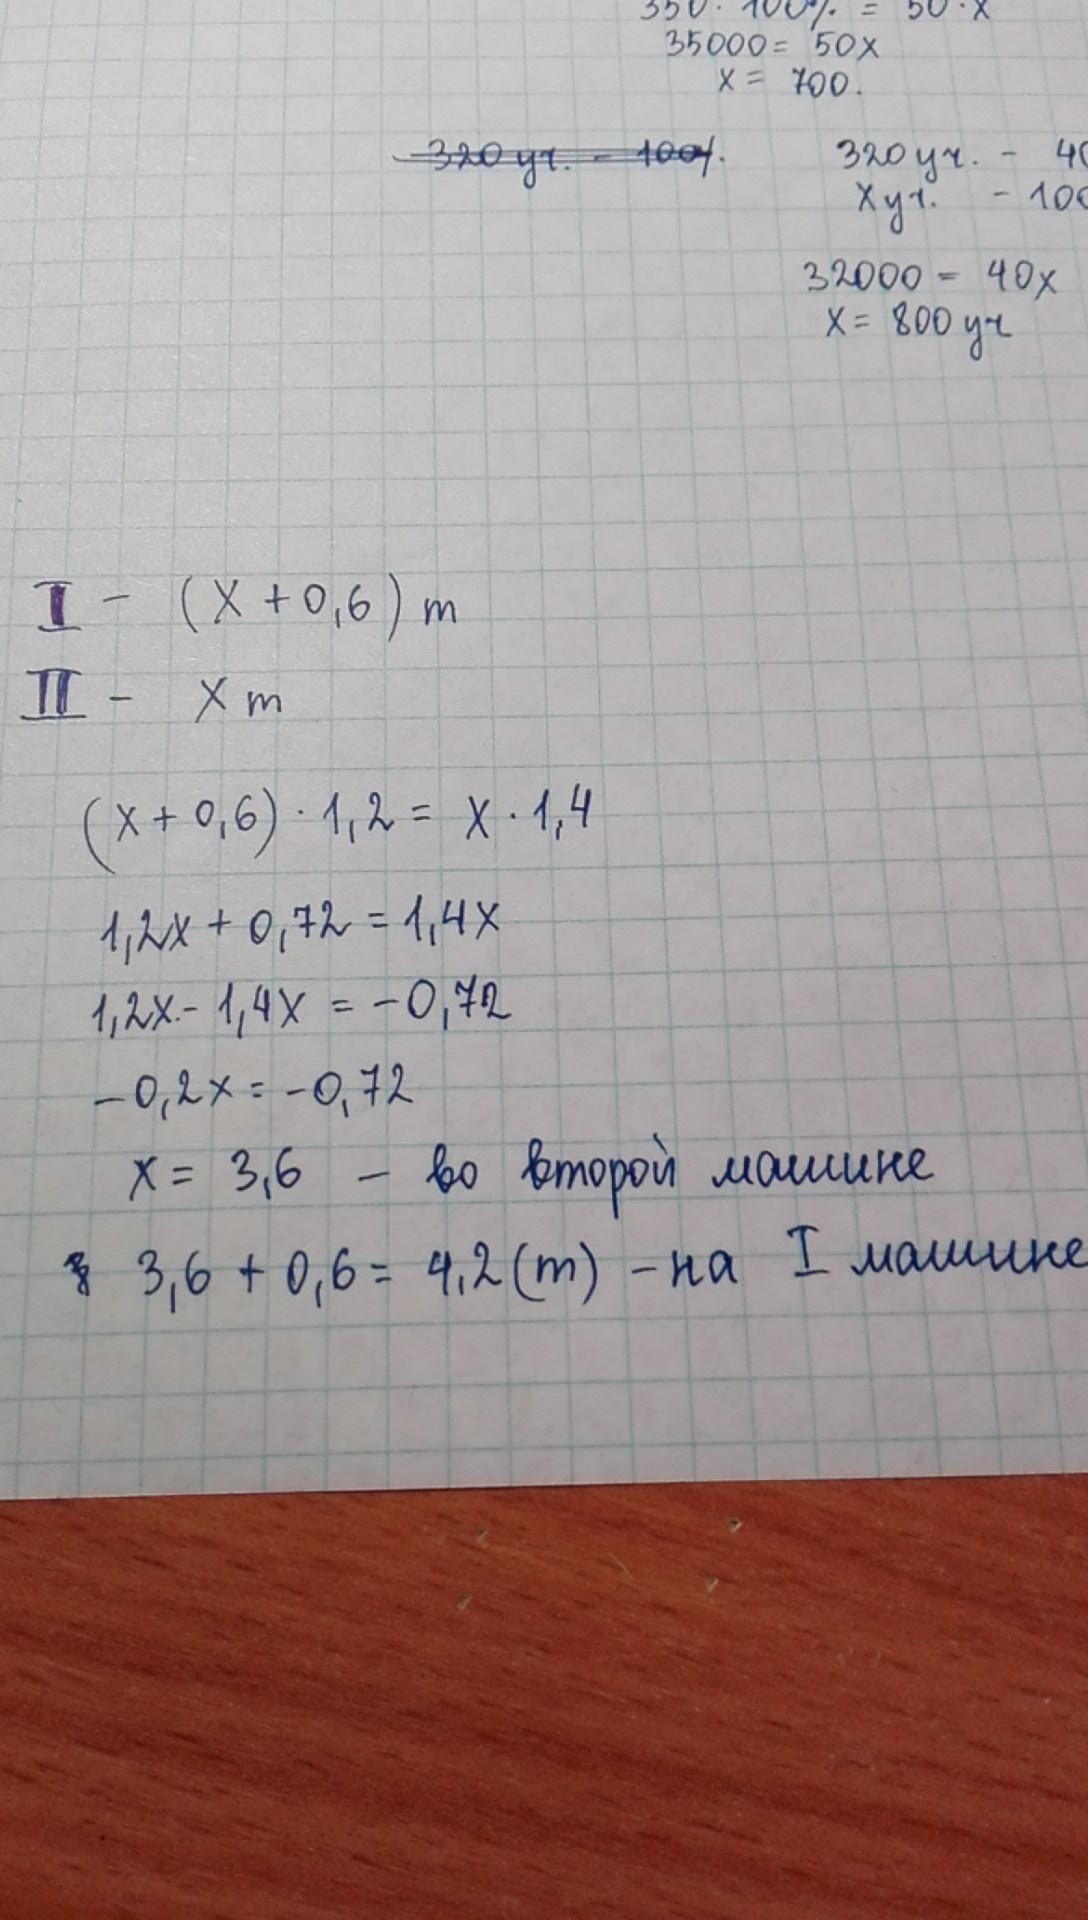 350 · 100% = 50 · x
35000 = 50x
x = 700.
320 уч. - 100%.
320 уч. - 40
x уч. - 100
32000 = 40x
x = 800 уч
I - (x + 0,6) т
II - x т
(x + 0,6) · 1,2 = x · 1,4
1,2x + 0,72 = 1,4x
1,2x - 1,4x = -0,72
-0,2x = -0,72
x = 3,6 - во второй машине
3,6 + 0,6 = 4,2 (т) - на I машине